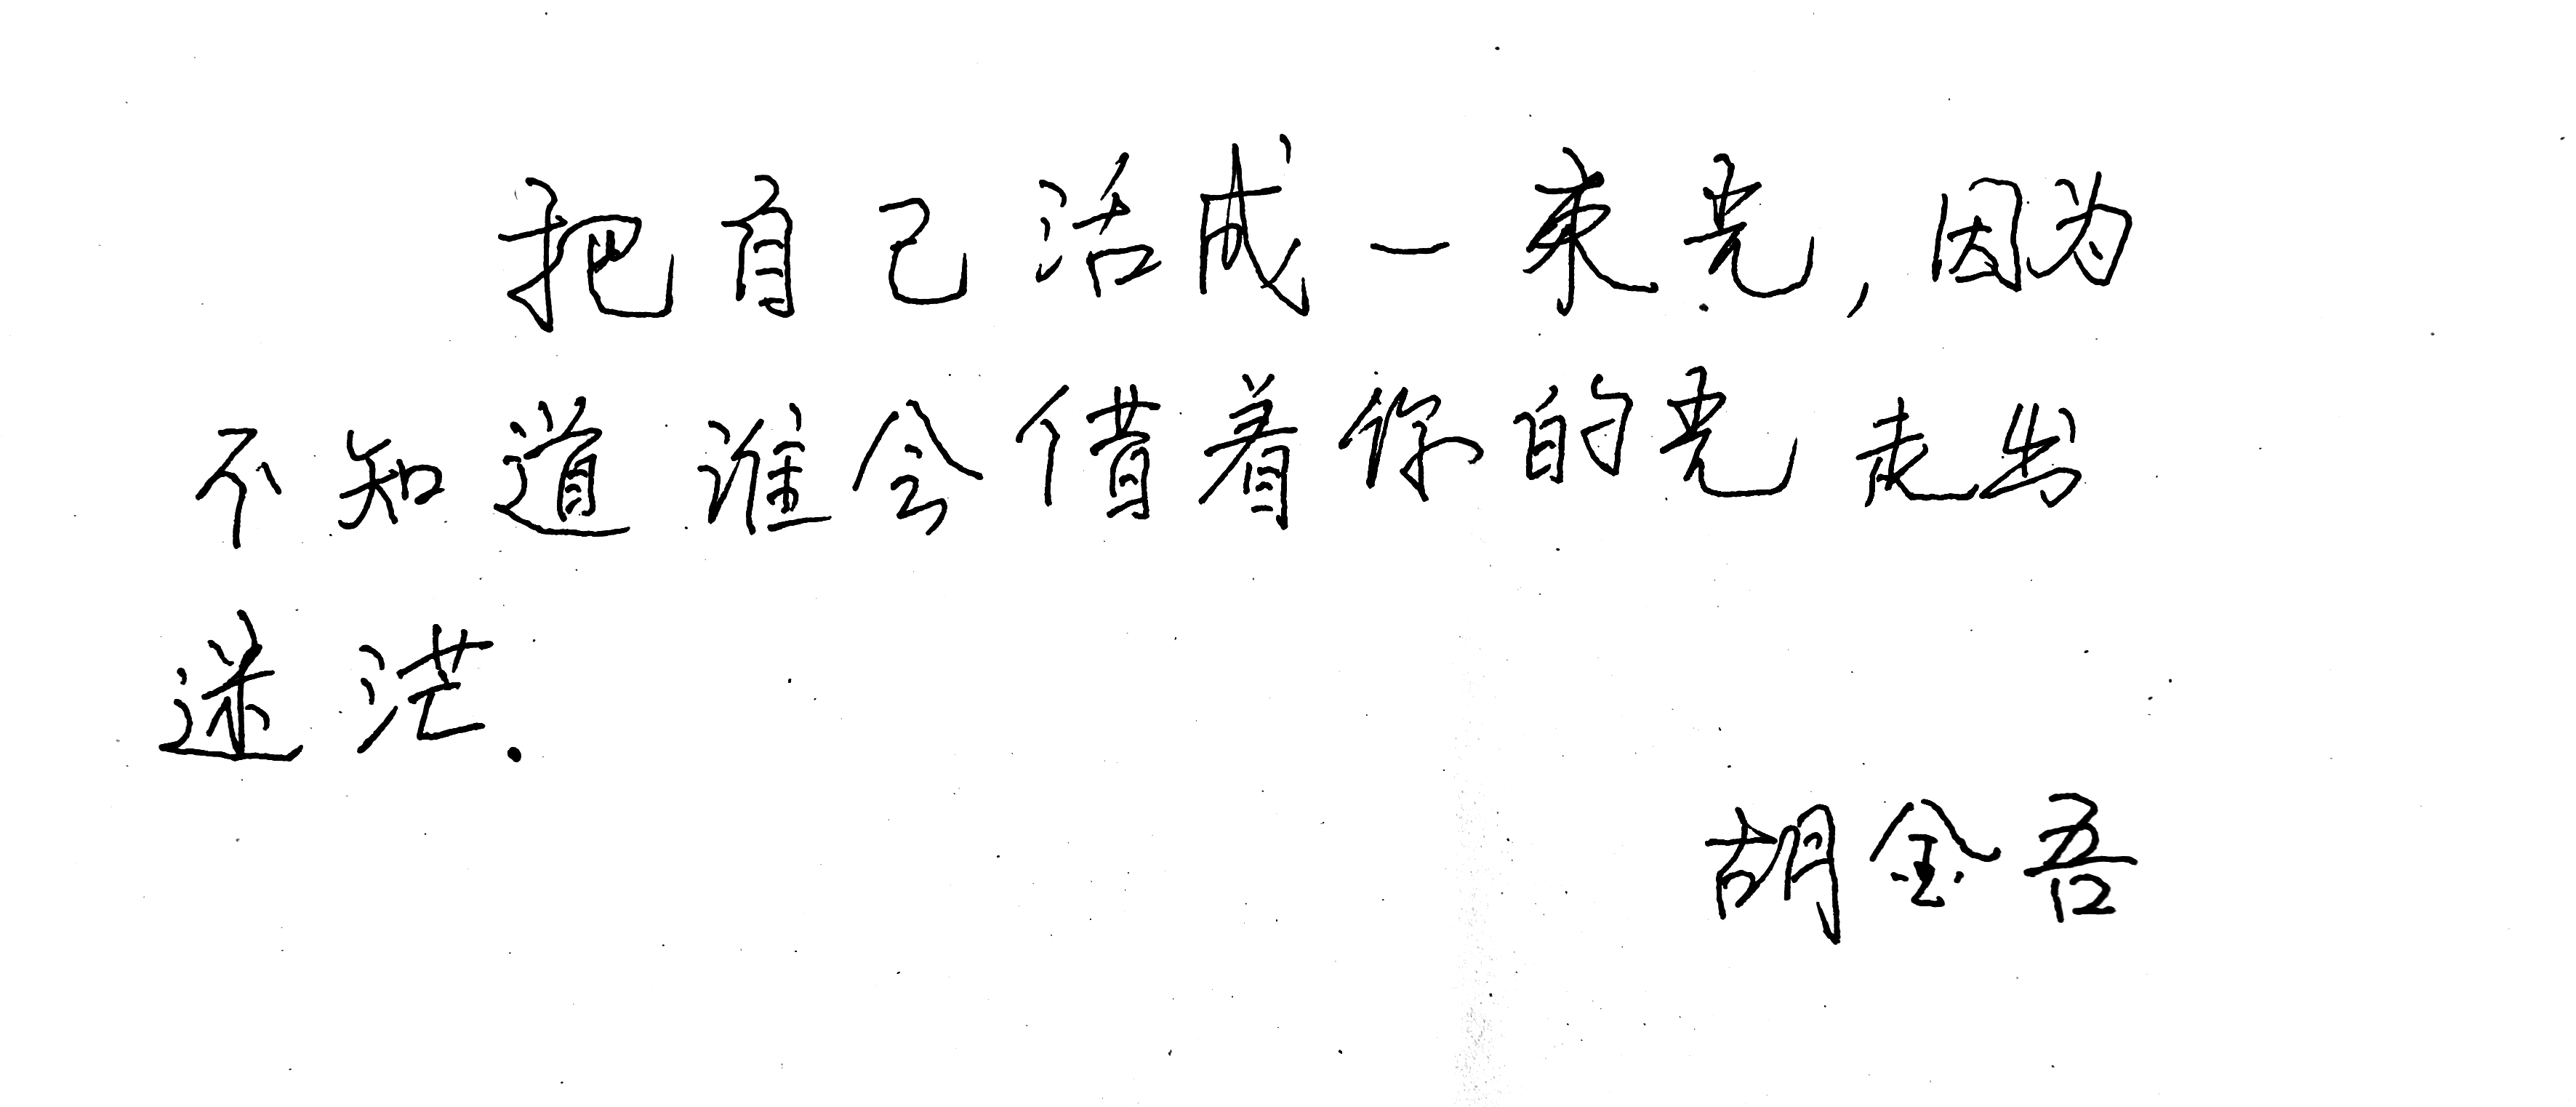 把自己活成一束光,因为
不知道谁会借着你的光走出
迷茫.
胡金吾